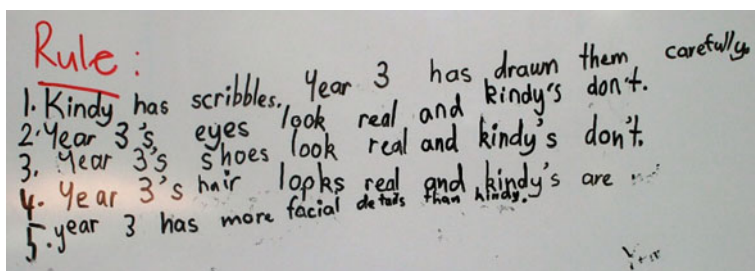 Rule:
1. Kindy has scribbles. Year 3 has drawn them carefully.
2. Year 3's eyes look real and kindy's don't.
3. Year 3's shoes look real and kindy's don't.
4. Year 3's hair looks real and kindy's are
5. year 3 has more facial details than kindy.